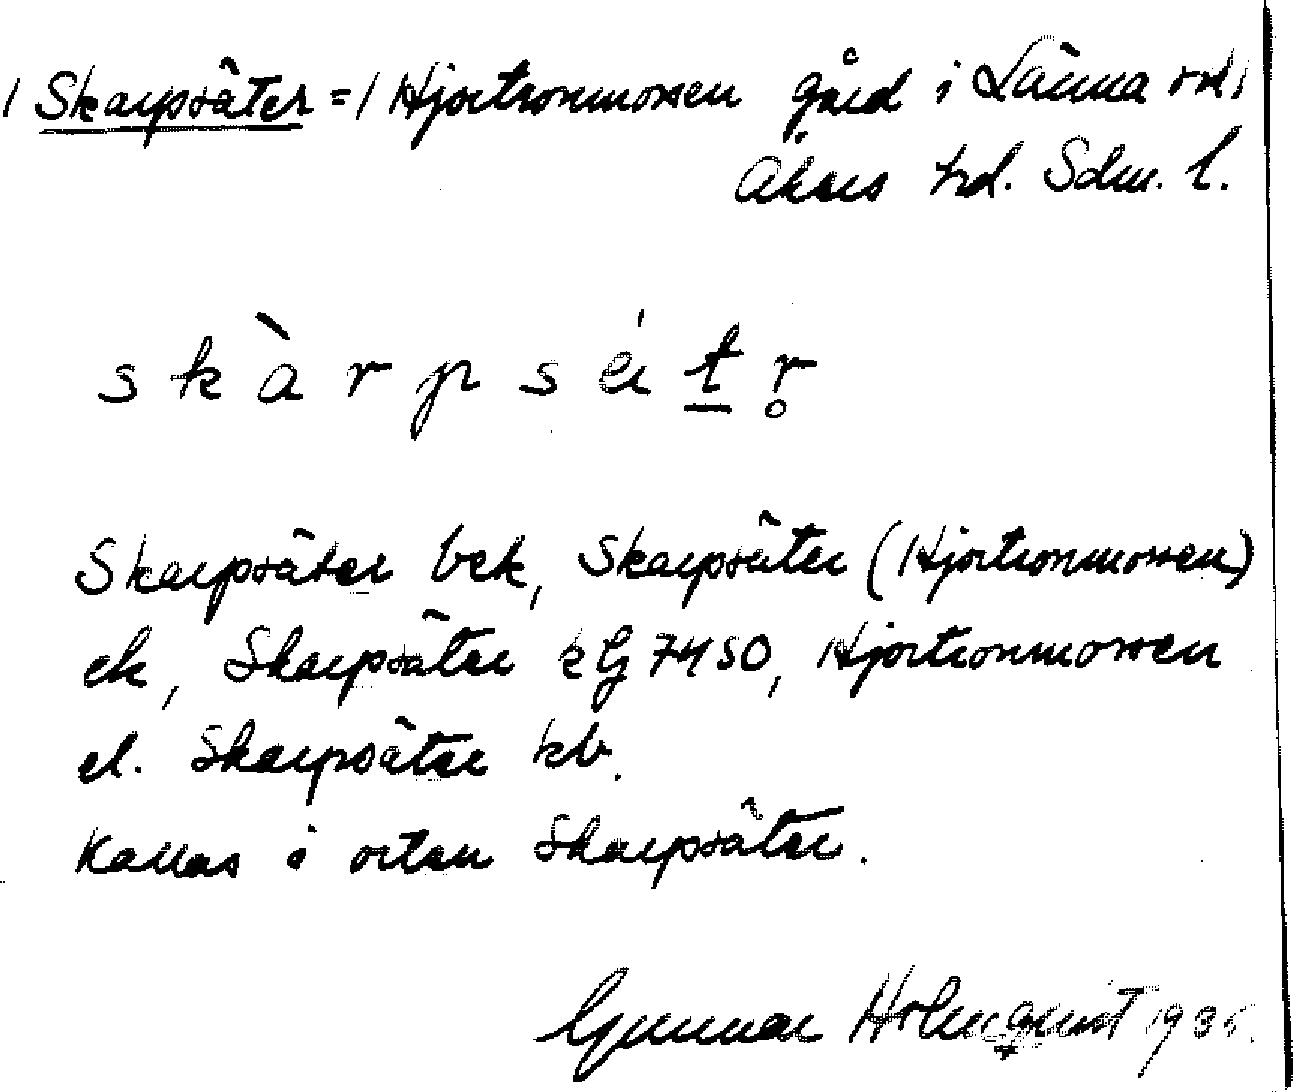 / Skarpsäter = / Hjortronmossen gård i Länna sn i
Åkers hd. Sdm. l.
s k à r p s é̈ t̲ r̥
Skarpsäter bek, Skarpsäter (Hjortronmossen)
ek, Skarpsäter kG 7450, Hjortronmossen
el. Skarpsäter kb.
Kallas i orten Skarpsäter.
Gunnar Holmquist 1935.